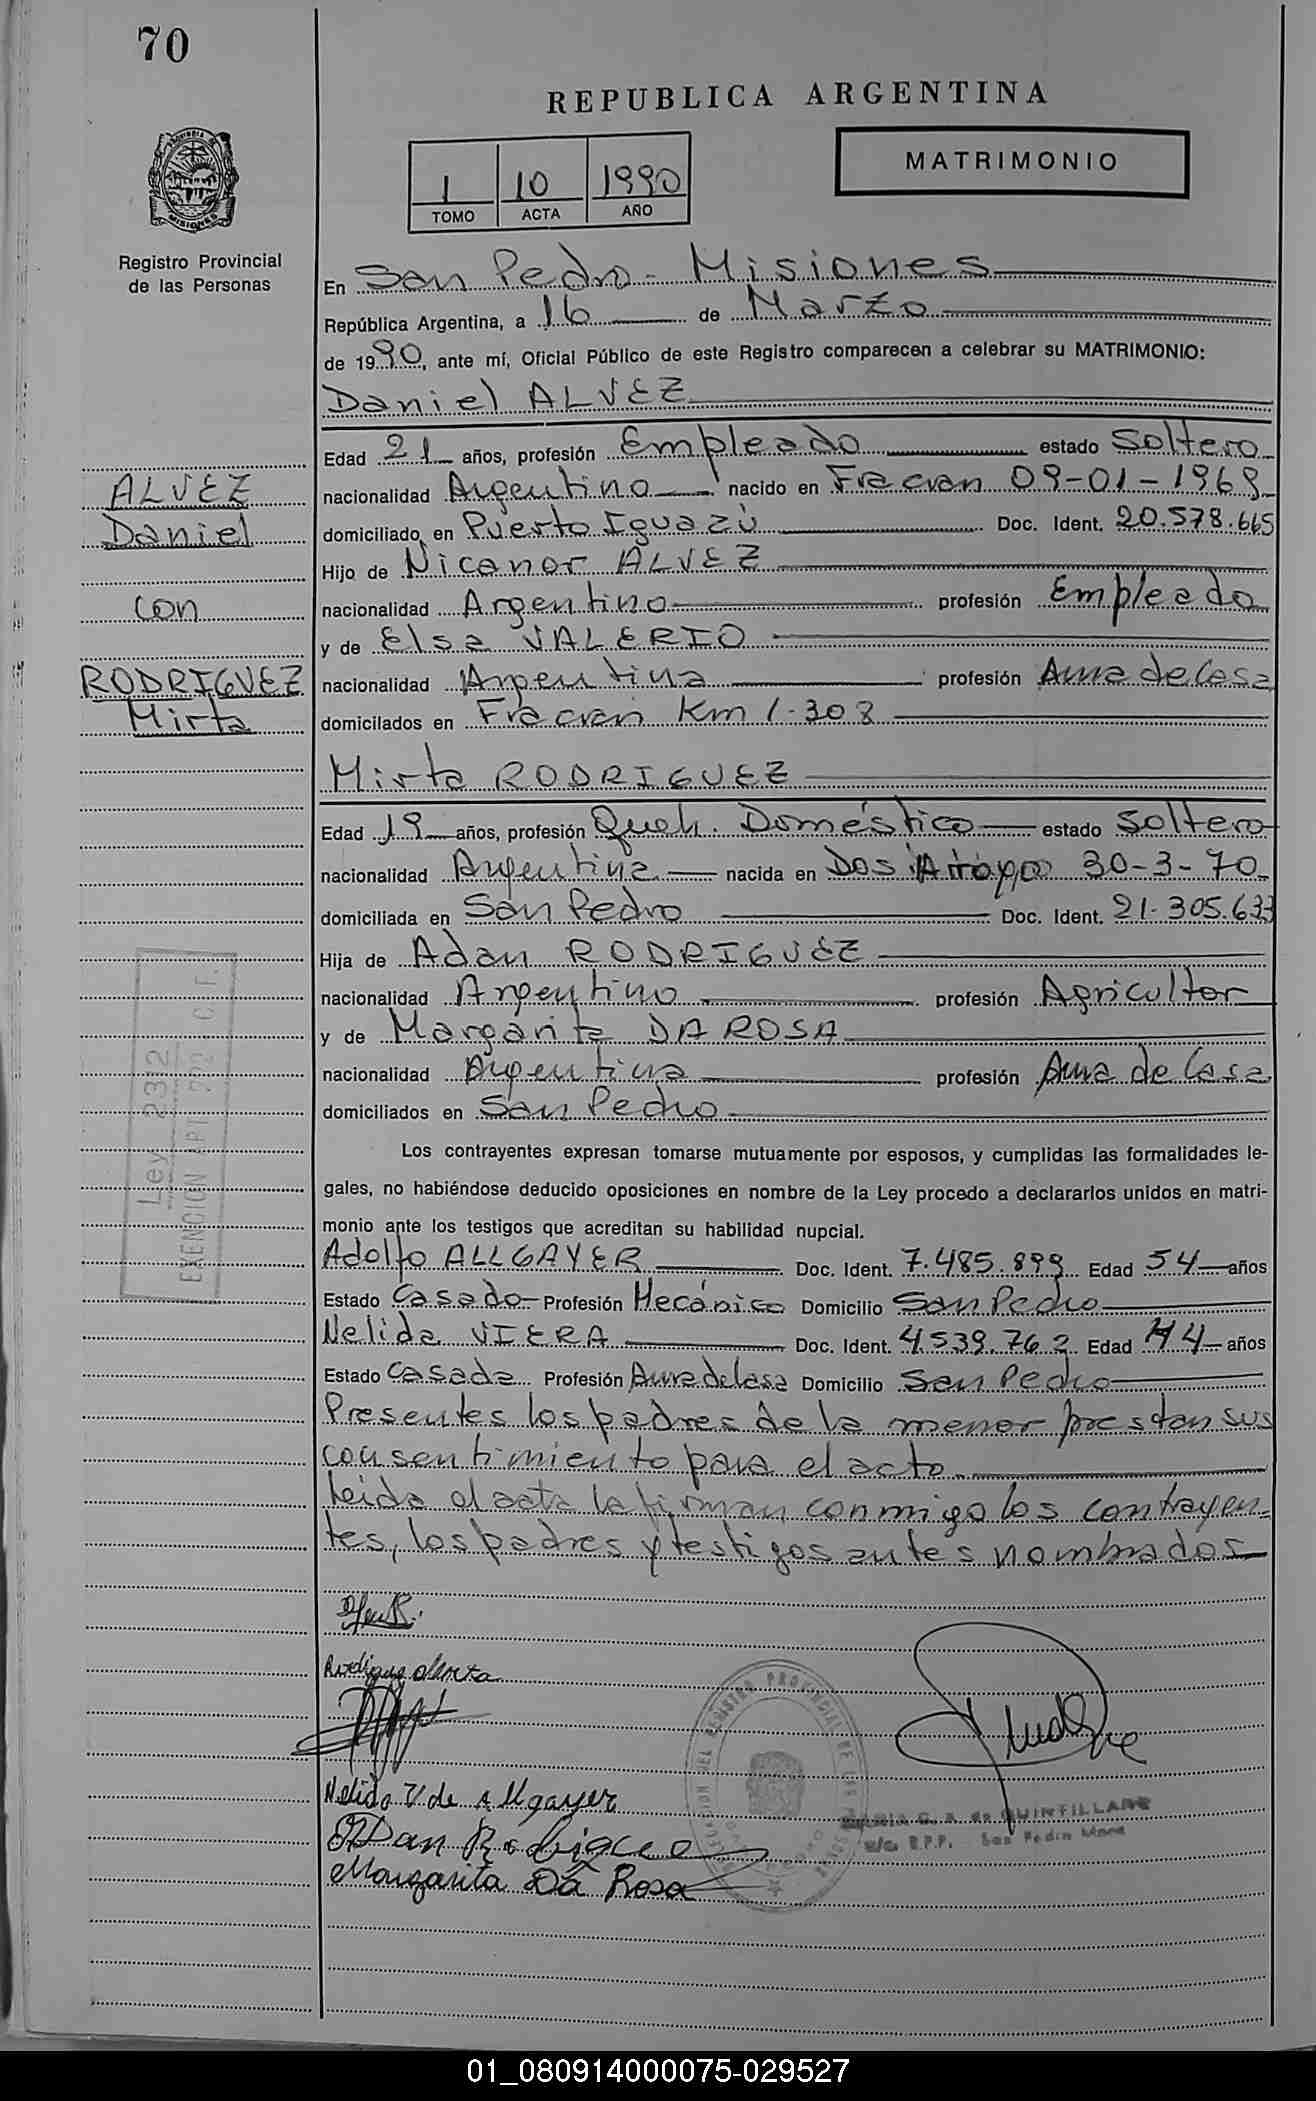 70
REPUBLICA ARGENTINA
MATRIMONIO
1 10 1990
TOMO ACTA AÑO
Registro Provincial
de las Personas
En San Pedro - Misiones
República Argentina, a 16 de Marzo
de 1990, ante mí, Oficial Público de este Registro comparecen a celebrar su MATRIMONIO:
Daniel ALVEZ
Edad 21 años, profesión Empleado estado Soltero
nacionalidad Argentino nacido en Fracran 09-01-1969
domiciliado en Puerto Iguazú Doc. Ident. 20.578.665
Hijo de Nicanor ALVEZ
nacionalidad Argentino profesión Empleado
y de Elsa VALERIO
nacionalidad Argentina profesión Ama de Casa
domicilados en Fracran Km 1.308
ALVEZ
Daniel
con
RODRIGUEZ
Mirta
Mirta RODRIGUEZ
Edad 19 años, profesión Queh. Doméstico estado Soltero
nacionalidad Argentina nacida en Dos Arroyo 30-3-70
domiciliada en San Pedro Doc. Ident. 21.305.633
Hija de Adan RODRIGUEZ
nacionalidad Argentino profesión Agricultor
y de Margarita DA ROSA
nacionalidad Argentina profesión Ama de Casa
domiciliados en San Pedro
Ley 2312
EXENCION
Los contrayentes expresan tomarse mutuamente por esposos, y cumplidas las formalidades le-
gales, no habiéndose deducido oposiciones en nombre de la Ley procedo a declararlos unidos en matri-
monio ante los testigos que acreditan su habilidad nupcial.
Adolfo ALLGAYER Doc. Ident. 7.485.899 Edad 54 años
Estado Casado Profesión Mecánico Domicilio San Pedro
Nelida VIERA Doc. Ident. 4.539.762 Edad 44 años
Estado Casada Profesión Ama de Casa Domicilio San Pedro
Presentes los padres de la menor prestan sus
consentimiento para el acto
leida el acta la firman conmigo los contrayen-
tes, los padres y testigos antes nombrados
Rodriguez Mirta
Nelida V de Allgayer
ADan Rodriguez
Margarita Da Rosa
DEL REGISTRO PROVINCIAL DE LAS
MARIA G. A. de QUINTILLAN
R.P.P. San Pedro Mnes
01_080914000075-029527